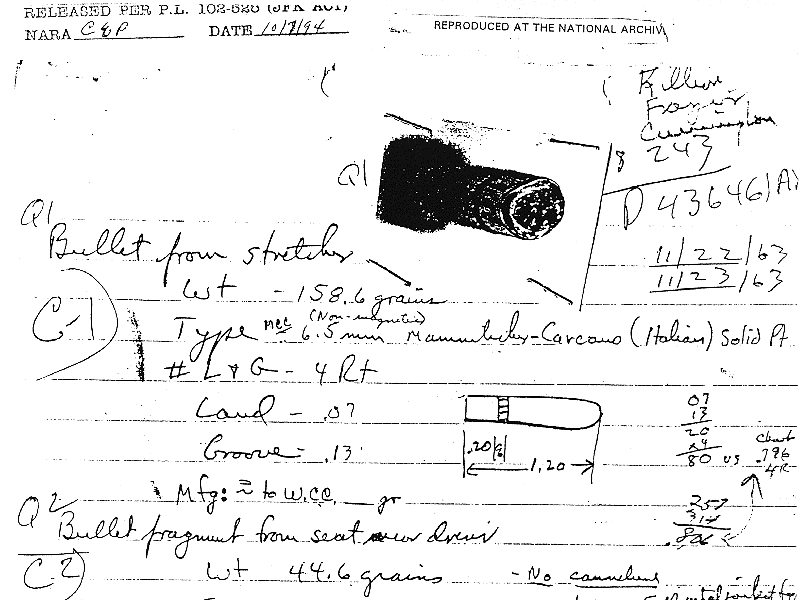 RELEASED PER P.L. 102-526 (JFK ACT)
NARA C&P DATE 10/7/94
REPRODUCED AT THE NATIONAL ARCHIV
Killion
Frazier
Cunningham
243
D 43646 (A)
11/22/63
11/23/63
Q1
Q1
Bullet from stretcher
C-1
Wt - 158.6 grains
(Non-magnetic)
Type 6.5 mm Mannlicher-Carcano (Italian) Solid Pt
# L & G - 4 Rt
Land - .07
Groove - .13
.20
1.20
07
13
20
x4
80 us
Chart
.796
4R
Mfg: ≈ to W.CC. gr
257
314
.806
Q2
Bullet fragment from seat driver
C2
Wt 44.6 grains - No cannelure